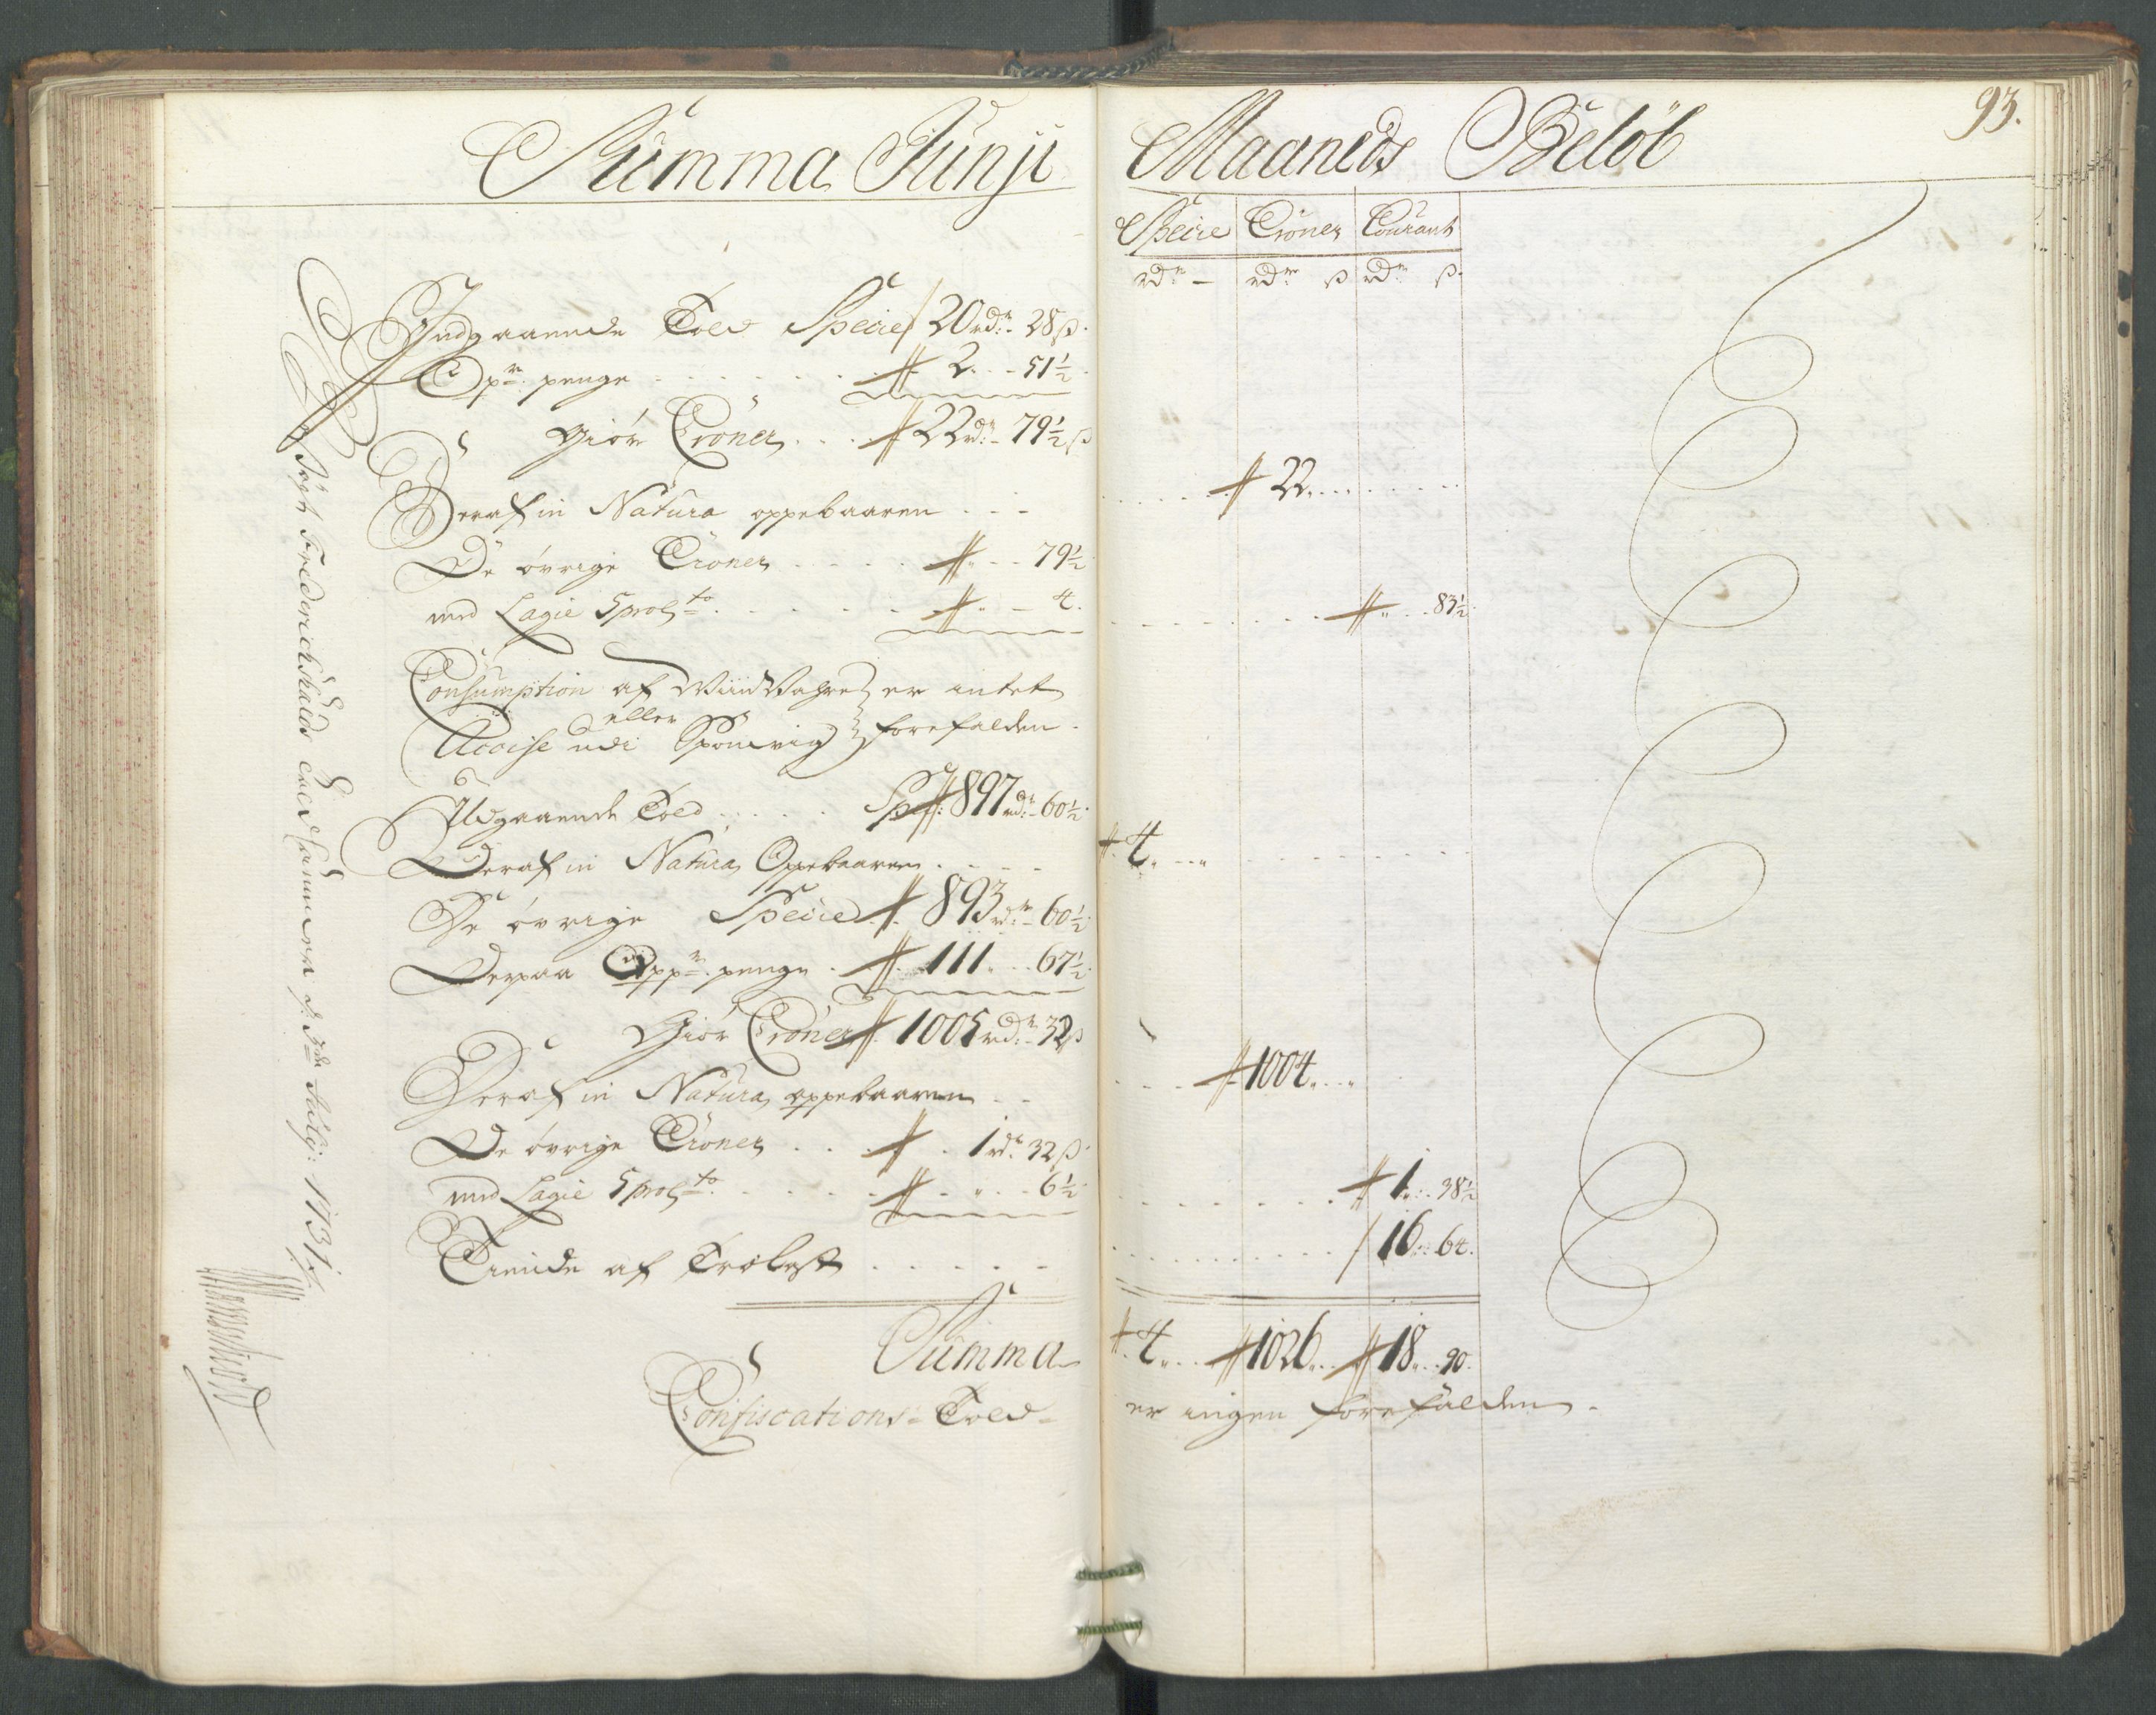 Summa Junji Maaneds Beløb
93.
Specie Croner Courant
rdr – rdr ß rdr ß
Indgaaende Told Specie 20 rdr 28 ß.
Opr. penge 2 51½
Giør Croner 22 rdr 79½ ß
Deraf in Natura oppebaaren 22
De øvrige Croner 79½
med Lagie 5 proCto 4. 83½
Consumption af Wiid Vahre er intet
Accise udi eller forefalden
Udgaaende Told Sp. 897 rdr 60½
Deraf in Natura Oppebaaren 4
De øvrige Specie 893 rdr 60½
Derpaa Oppr. penge 111 67½
Giør Croner 1005 rdr 32 ß
Deraf in Natura oppebaaren 1004
De øvrige Croner 1 rdr 32 ß
med Lagie 5 proCto 6½ 1 38½
Tiende af Trælast 16 64.
Summa 4 1026 18 90.
Confiscations-Told er ingen forefalden.
Friderichshalds Told Cammer d. 3de Julij: 1731